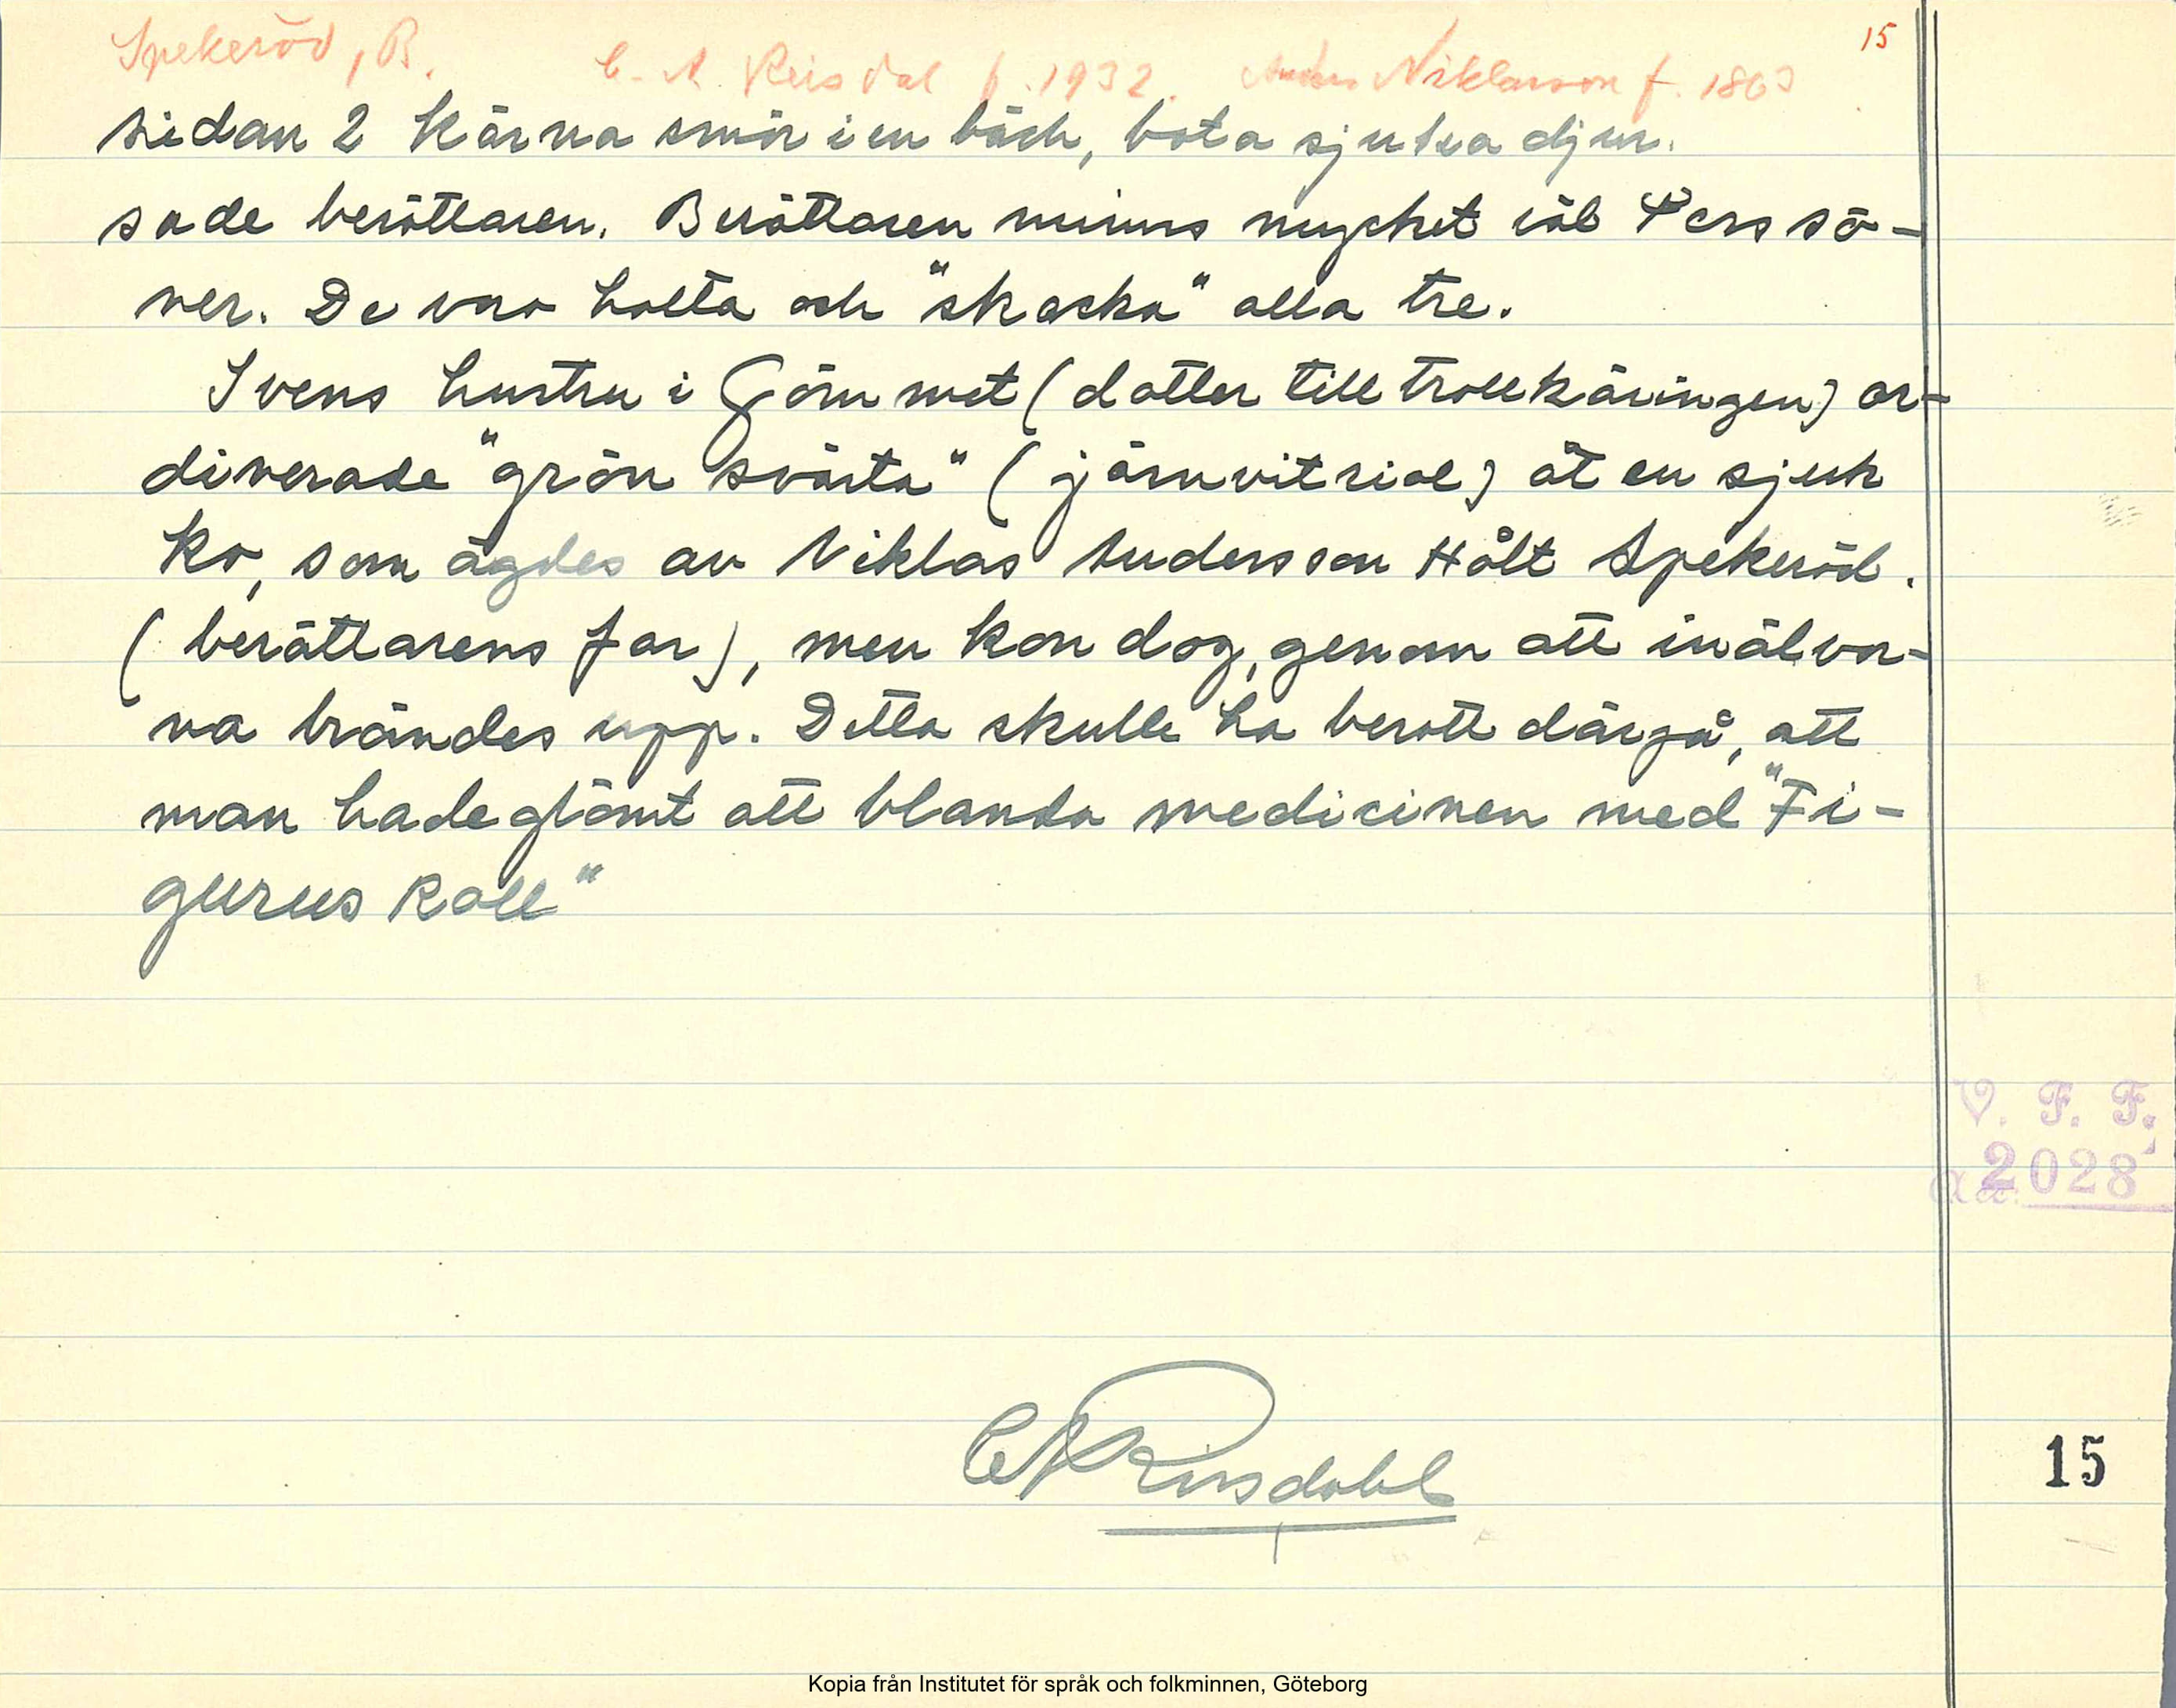 Spekeröd, B.
C. A. Reisdal f. 1932. Anders Niklasson f. 1863
15
sidan 2 kärna smör i en bäck, bota sjuka djur.
sade berättaren. Berättaren minns mycket väl Pers sö-
ner. De voro halta och "skacka" alla tre.
Svens hustru i Gömmet (dotter till trollkäringen) or-
dinerade "grön svärta" (järnvitriol) åt en sjuk
ko, som ägdes av Niklas Andersson Hålt Spekeröd.
(berättarens far), men kon dog, genom att inälvor-
na brändes upp. Detta skulle ha berott därpå, att
man hade glömt att blanda medicinen med "Fi-
gurus Rall"
V. F. F.
Acc. 2028
CA Reisdahl
15
Kopia från Institutet för språk och folkminnen, Göteborg